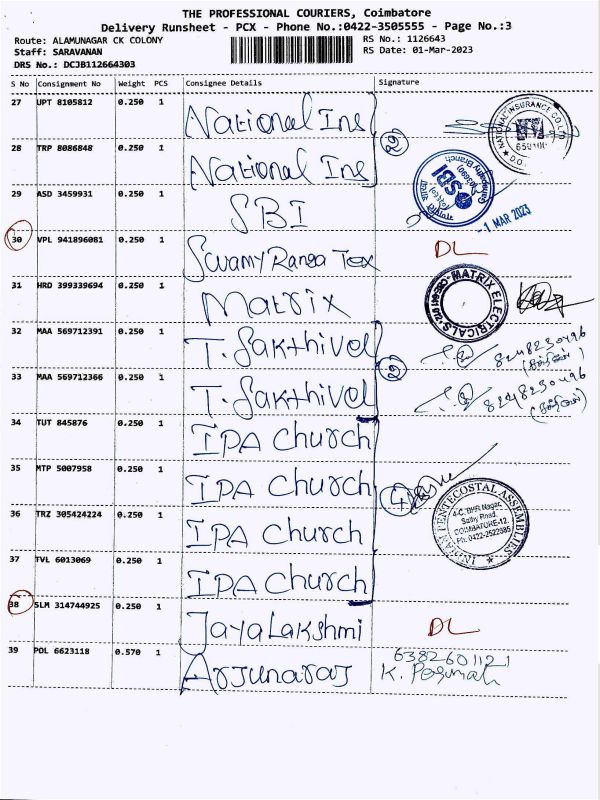 THE PROFESSIONAL COURIERS, Coimbatore
Delivery Runsheet - PCX - Phone No.:0422-3505555 - Page No.:3
Route: ALAMUNAGAR CK COLONY RS No.: 1126643
Staff: SARAVANAN RS Date: 01-Mar-2023
DRS No.: DCJB112664303
S No Consignment No Weight PCS Consignee Details Signature
27 UPT 8105812 0.250 1 National Ins
NATIONAL INSURANCE CO LTD
D.O.
28 TRP 8086848 0.250 1 National Ins
2
29 ASD 3459931 0.250 1 SBI
SBI
-1 MAR 2023
30 VPL 941896081 0.250 1 Swamy Ranga Tex DL
31 HRD 399339694 0.250 1 Matrix
MATRIX ELECTRICALS
32 MAA 569712391 0.250 1 T. Sakthivel 8248230496
2
33 MAA 569712366 0.250 1 T. Sakthivel 8248230496
34 TUT 845876 0.250 1 IPA Church
35 MTP 5007958 0.250 1 IPA Church
4
INDIAN PENTECOSTAL ASSEMBLIES
4-C, BHR Nagar,
Sathy Road,
COIMBATORE-12.
Ph: 0422-2522585
36 TRZ 305424224 0.250 1 IPA Church
37 TVL 6013069 0.250 1 IPA Church
38 SLM 314744925 0.250 1 Jaya Lakshmi DL
39 POL 6623118 0.570 1 Arjunaraj 6382601121